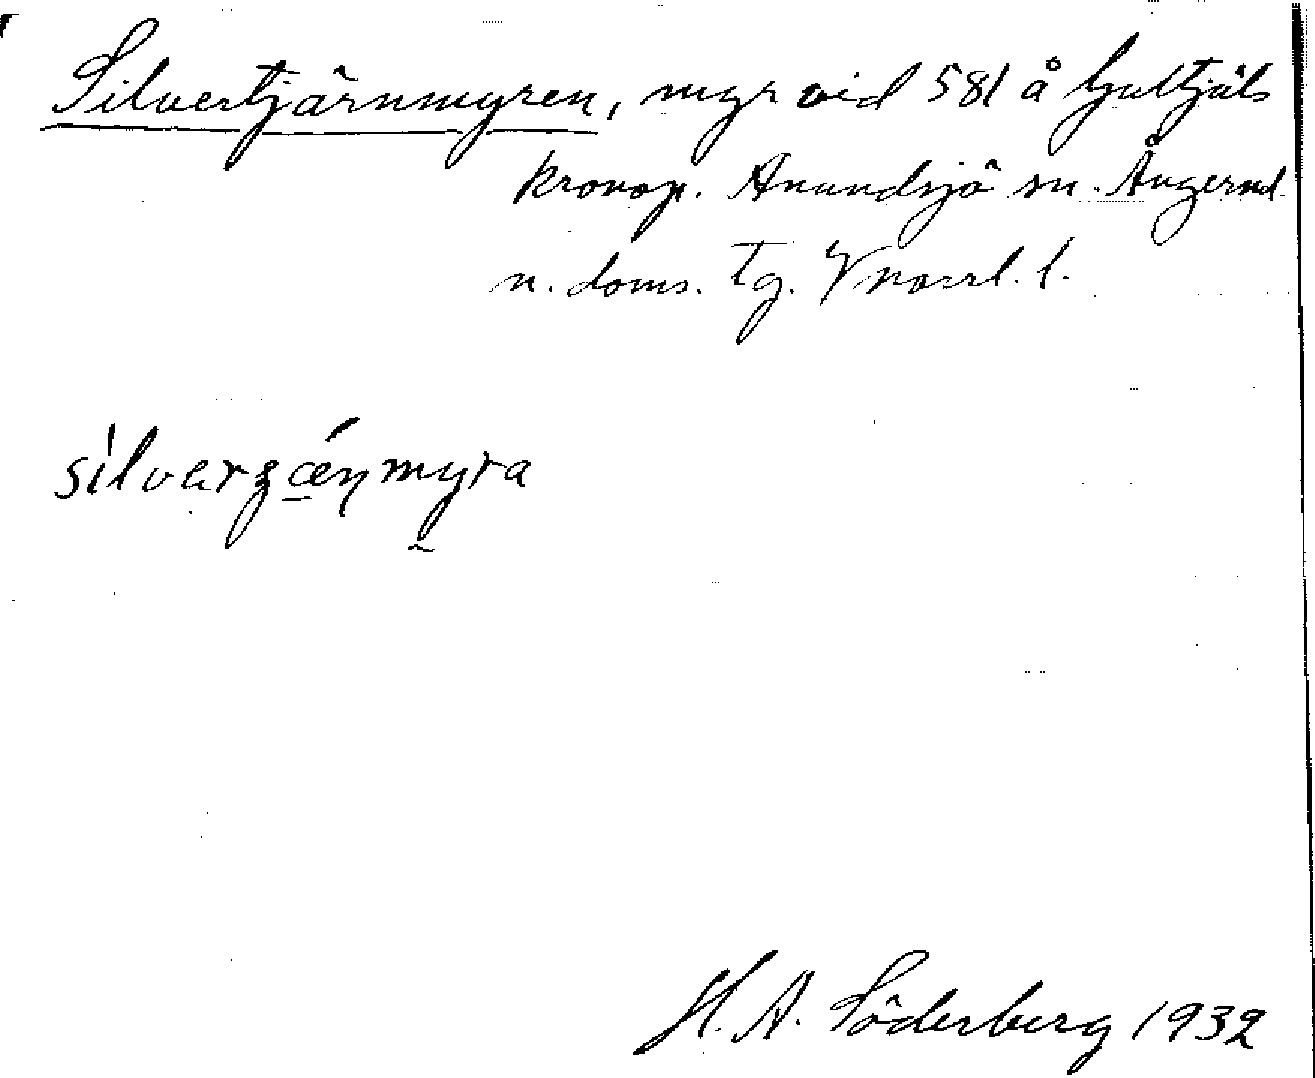 Silvertjärnmyren, myr vid 581 å Gultjäls
kronop. Anundsjö sn. Ångerml
n. doms. Tg. Vnorrl. l.
silvarʒæ̲ṇmyra
H. A. Söderberg 1932